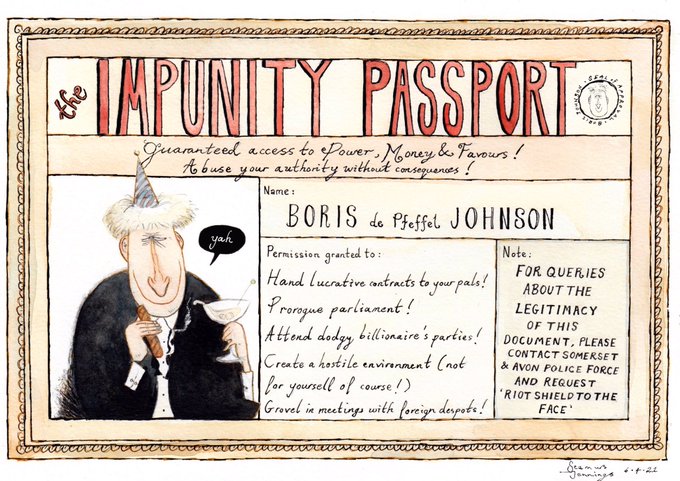 the IMPUNITY PASSPORT
SEAL OF APPROVAL
Guaranteed access to Power, Money & Favours!
Abuse your authority without consequences!
yah
Name:
BORIS de Pfeffel JOHNSON
Permission granted to:
Hand lucrative contracts to your pals!
Prorogue parliament!
Attend dodgy billionaire's parties!
Create a hostile environment (not
for yourself of course!)
Grovel in meetings with foreign despots!
Note:
FOR QUERIES
ABOUT THE
LEGITIMACY
OF THIS
DOCUMENT, PLEASE
CONTACT SOMERSET
& AVON POLICE FORCE
AND REQUEST
'RIOT SHIELD TO THE
FACE'
Seamus
Jennings